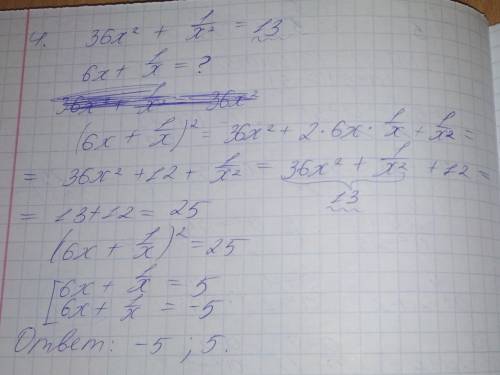 4. 36x² + 1/x² = 13
6x + 1/x = ?
36x² + 1/x² 36x²
(6x + 1/x)² = 36x² + 2·6x·1/x + 1/x² =
= 36x² + 12 + 1/x² = 36x² + 1/x² + 12 =
13
= 13 + 12 = 25
(6x + 1/x)² = 25
[6x + 1/x = 5
6x + 1/x = -5
Ответ: -5 ; 5.